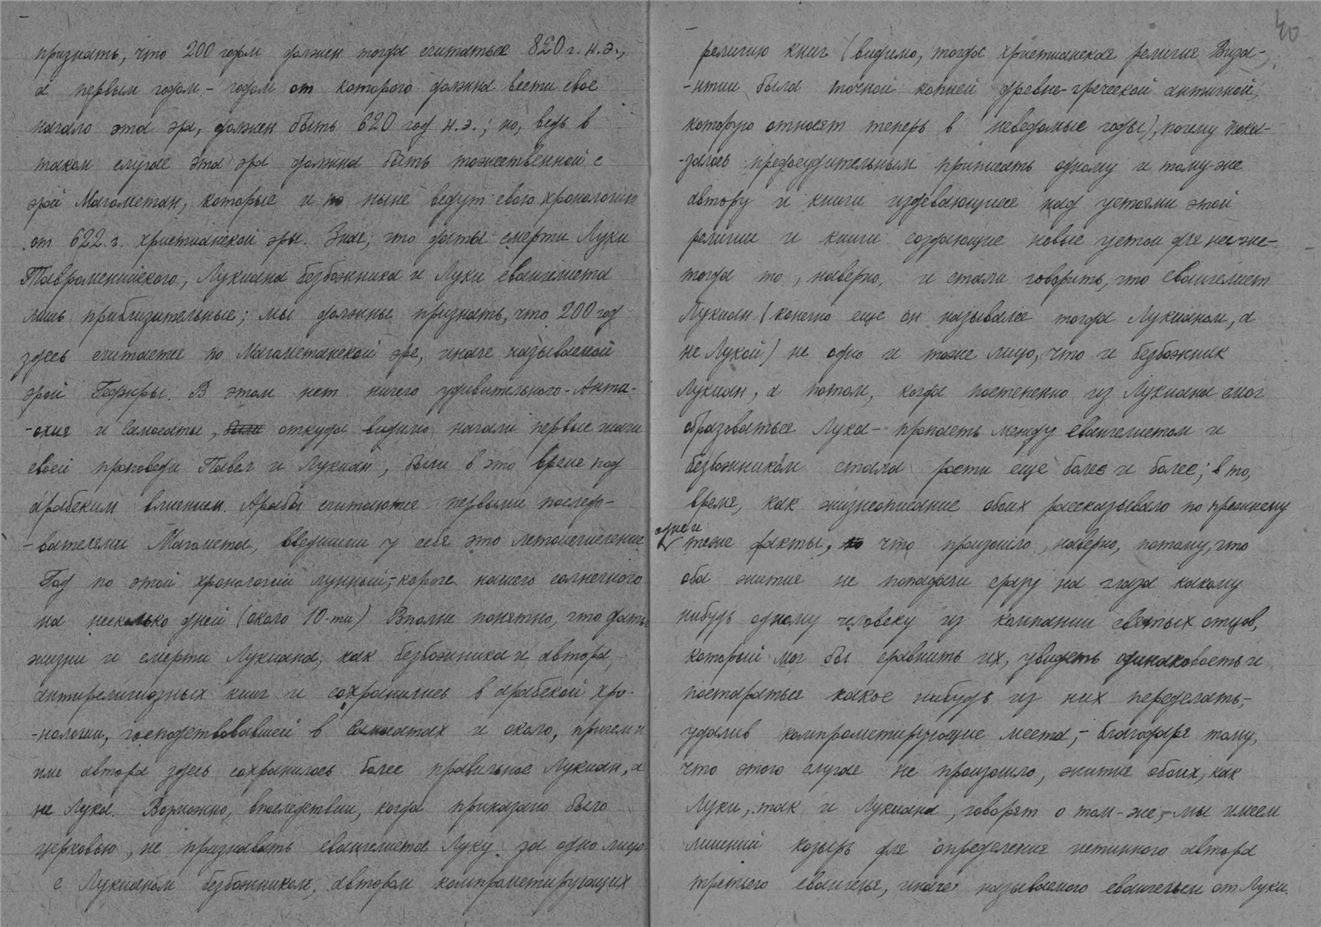 признать, что 200 годом должен тогда считаться 820 г. н.э.,
а первым годом - годом от которого должна вести свое
начало эта эра, должен быть 620 год н.э.; но, ведь в
таком случае эта эра должна быть тожественной с
эрой Магометан, которые и по ныне ведут свою хронологию
от 622 г. христианской эры. Зная, что даты смерти Луки
Тавроменийского, Лукиана безбожника и Луки евангелиста
лишь приблизительные; мы должны признать, что 200 год
здесь считается по Магометанской эре, иначе называемой
эрой Геджры. В этом нет ничего удивительного - Анти-
-охия и Самосаты, откуда видимо, начали первые шаги
своей проповеди Павел и Лукиан, были в это время под
арабским влиянием. Арабы считаются первыми последо-
-вателями Магомета, введшими у себя это летоисчисление
Год по этой хронологии лунный, - короче нашего солнечного
на несколько дней (около 10-ти) Вполне понятно, что даты
жизни и смерти Лукиана, как безбожника и автора
антирелигиозных книг и сохранились в арабской хро-
-нологии, господствовавшей в Самосатах и около, причем и
имя автора здесь сохранилось более правильное Лукиан, а
не Лука. Возможно, впоследствии, когда приказано было
церковью, не признавать евангелиста Луку за одно лицо
с Лукианом безбожником, автором компрометирующих
40
религию книг (видимо, тогда христианская религия Виза-
-нтии была точной копией древне-греческой античной,
которую относят теперь в неведомые годы), почему пока-
-залось предосудительным приписать одному и тому-же
автору и книги издевающиеся над устоями этой
религии и книги создающие новые устои для нее же-
тогда то, наверно, и стали говорить, что евангелист
Лукиан (конечно еще он назывался тогда Лукианом, а
не Лукой) не одно и тоже лицо, что и безбожник
Лукиан, а потом, когда постепенно из Лукиана смог
образоваться Лука - пропасть между евангелистом и
безбожником стала рости еще более и более; в то,
время, как жизнеописание обоих рассказывало по прежнему
одни и
теже факты, что произошло, наверно, потому, что
оба жития не попадали сразу на глаза какому
нибудь одному человеку из компании святых отцов,
который мог бы сравнить их, увидеть одинаковость и
постараться какое нибудь из них переделать,-
удалив компрометирующие места; - благодаря тому,
что этого случая не произошло, жития обоих, как
Луки, так и Лукиана, говорят о том-же, - мы имеем
лишний козырь для определения истинного автора
третьего евангелия, иначе называемого евангелием от Луки.